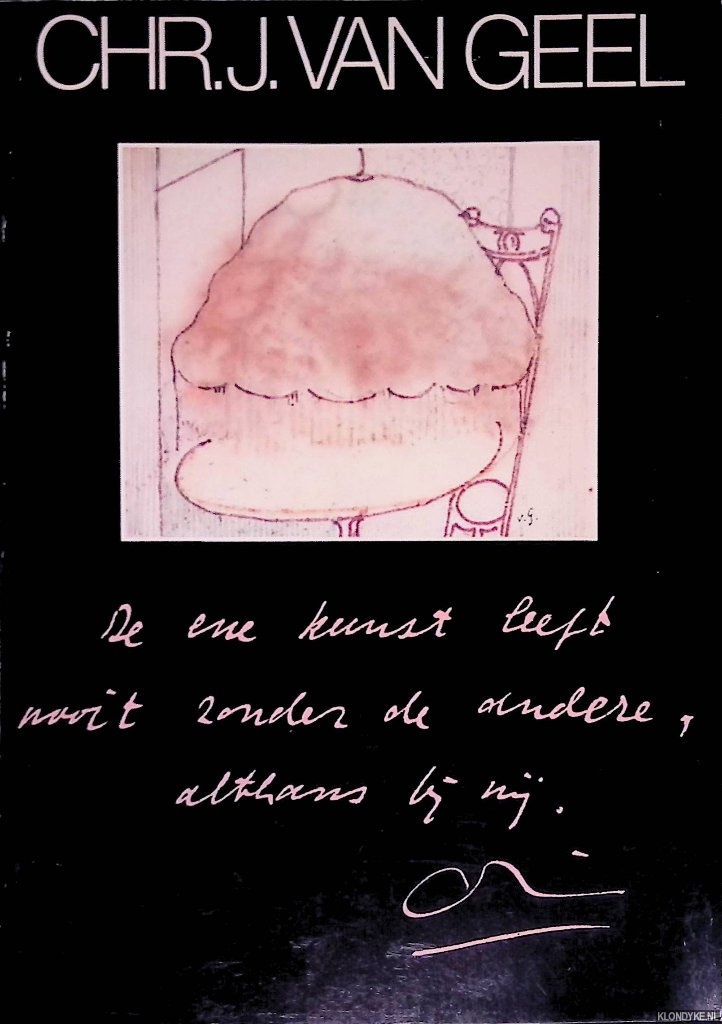 CHR.J. VAN GEEL
v.G.
De ene kunst leeft
nooit zonder de andere,
althans bij mij.
KLONDYKE.NL